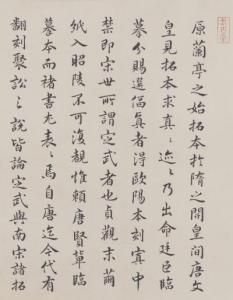 原蘭亭之始拓本於隋之開皇間唐文
皇見拓本求真〻迹〻乃出命廷臣臨
摹分賜選偪真者得歐陽本刻寘中
禁即宋世所謂定武者也貞觀末繭
紙入昭陵不可復覩惟賴唐賢單臨
摹本而褚書尤表〻焉自唐迄今代有
翻刻聚訟之說皆論定武與南宋諸拓